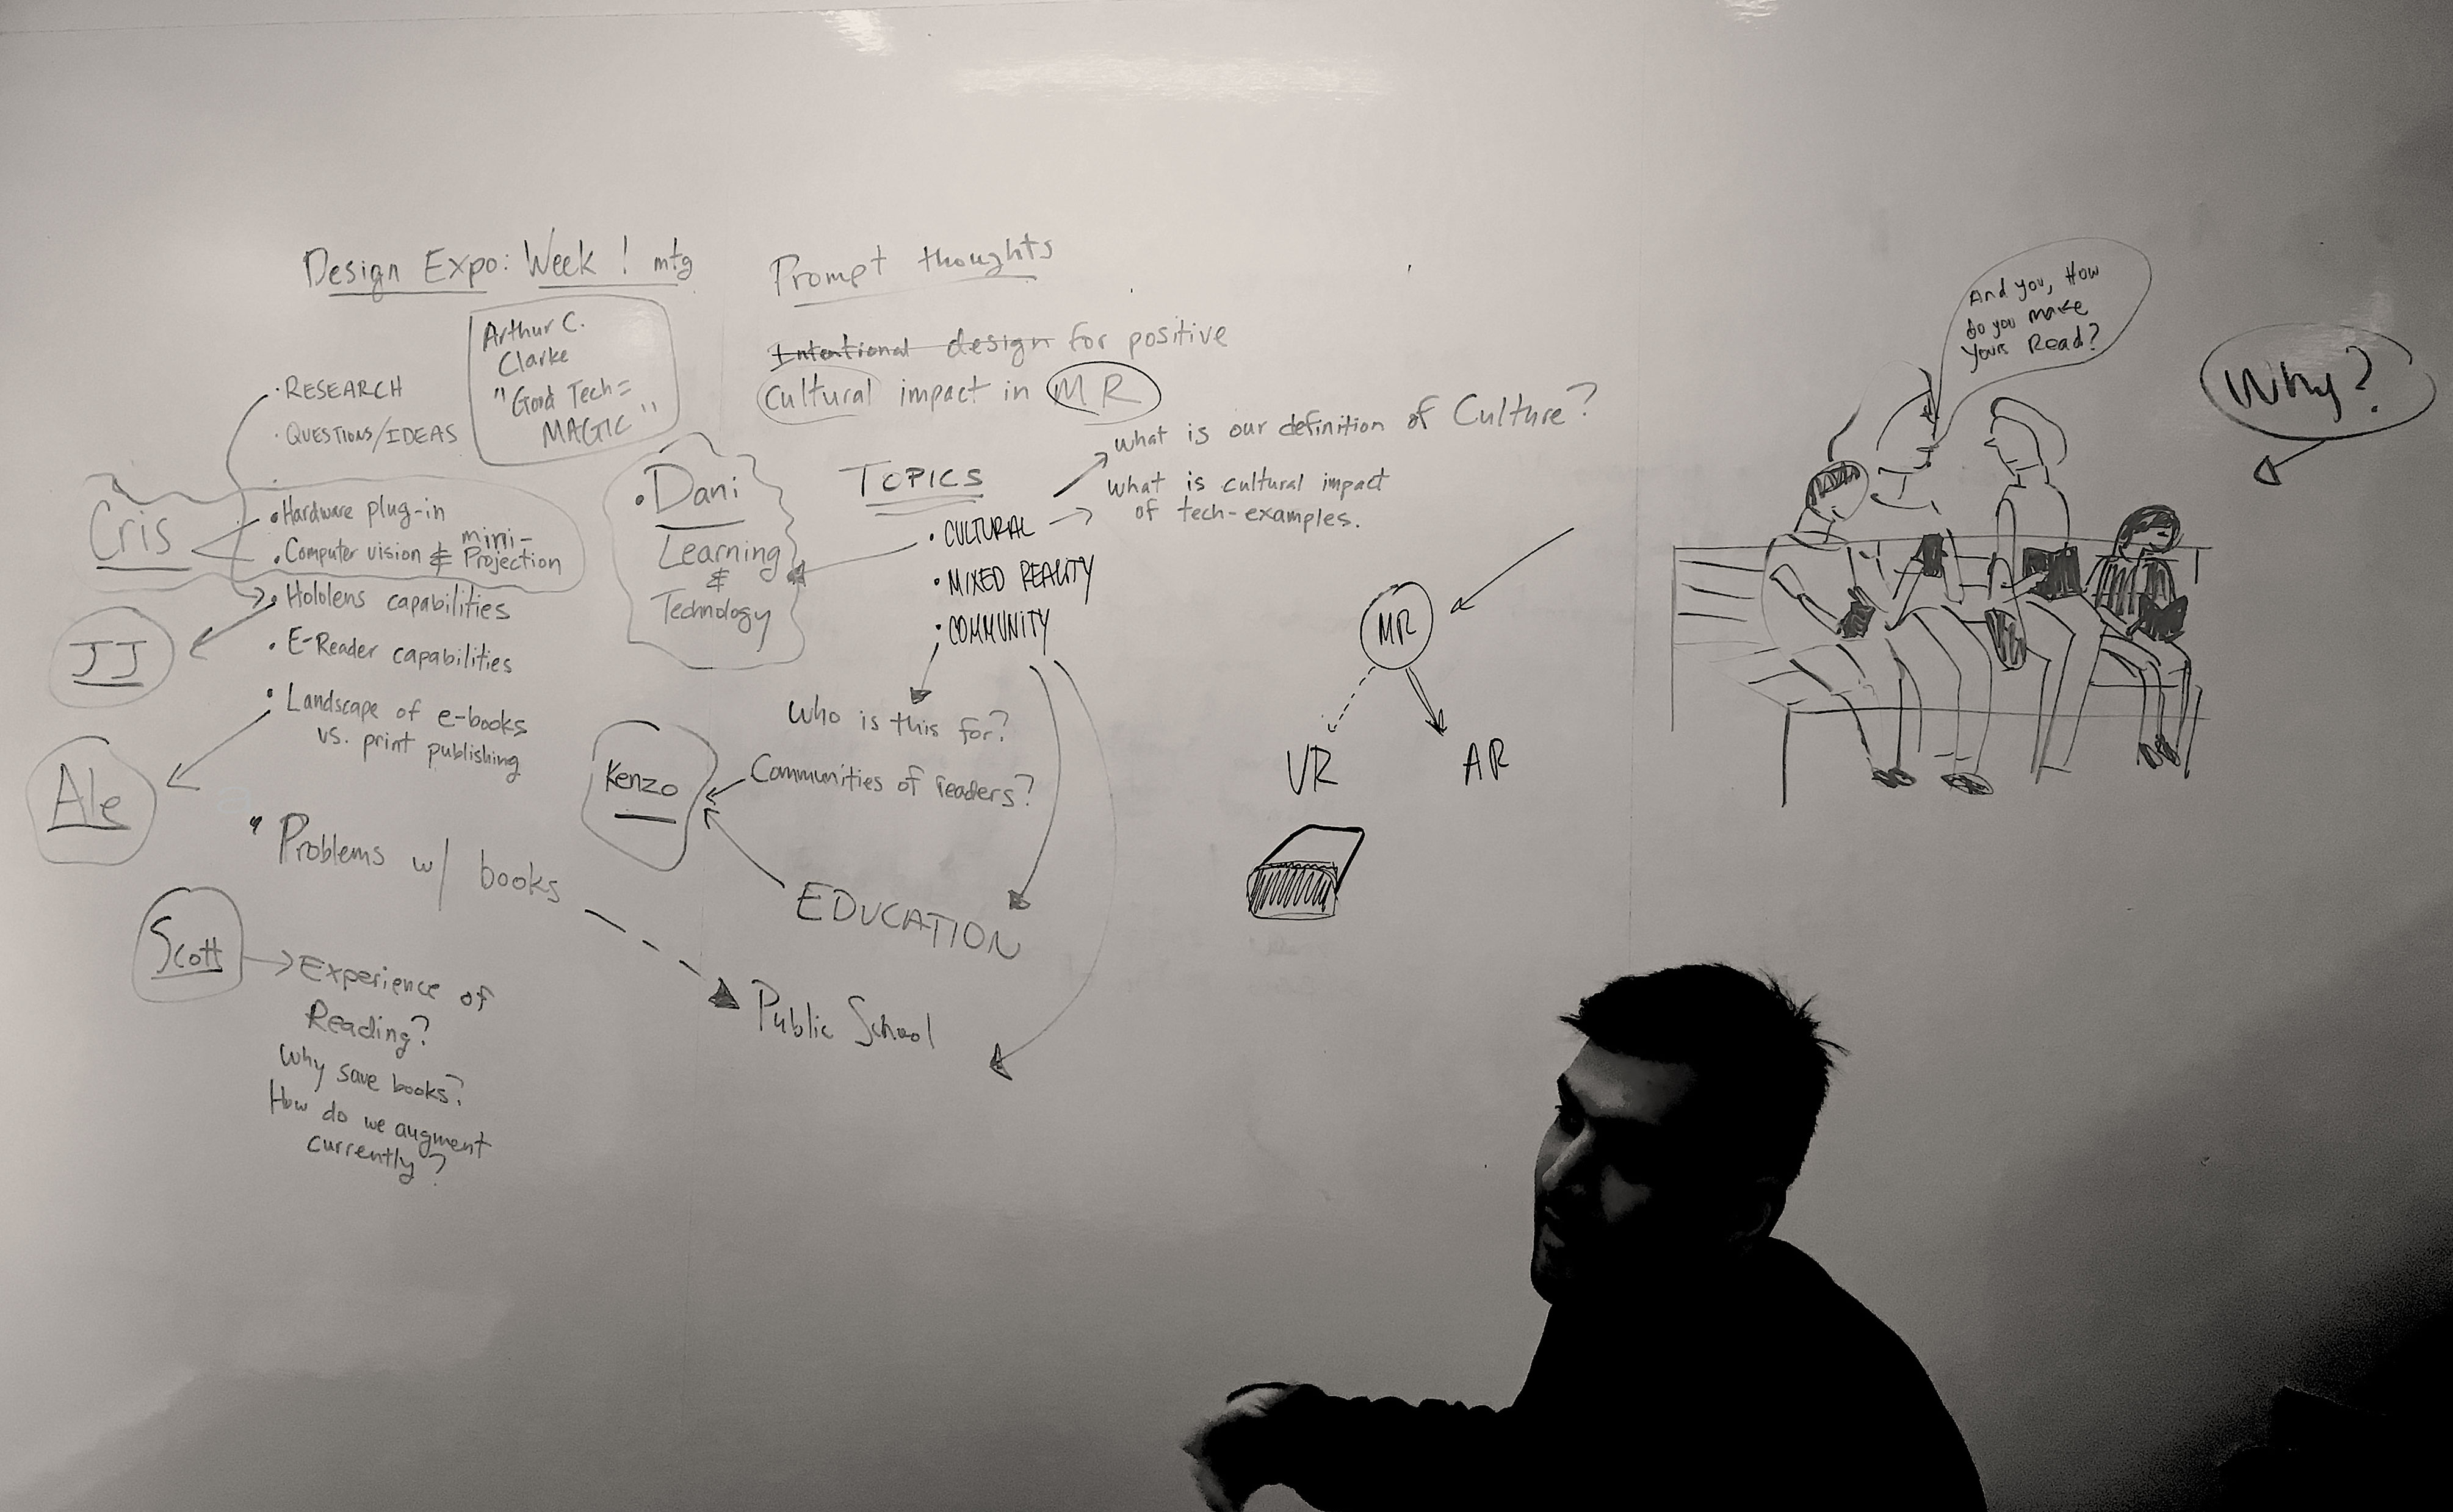 Design Expo: Week 1 mtg
Arthur C.
Clarke
"Good Tech=
MAGIC"
· RESEARCH
· QUESTIONS/IDEAS
Cris
• Hardware plug-in
• Computer vision & mini-
Projection
• Hololens capabilities
JJ
• E-Reader capabilities
• Landscape of e-books
vs. print publishing
Ale
Problems w/ books
Scott
Experience of
Reading?
Why save books?
How do we augment
currently?
Prompt thoughts
Intentional design for positive
cultural impact in MR
• Dani
Learning
&
Technology
TOPICS
• CULTURAL
• MIXED REALITY
• COMMUNITY
what is our definition of Culture?
what is cultural impact
of tech-examples.
Who is this for?
Kenzo
Communities of readers?
EDUCATION
Public School
MR
VR
AR
And you, How
do you make
yours Read?
Why?